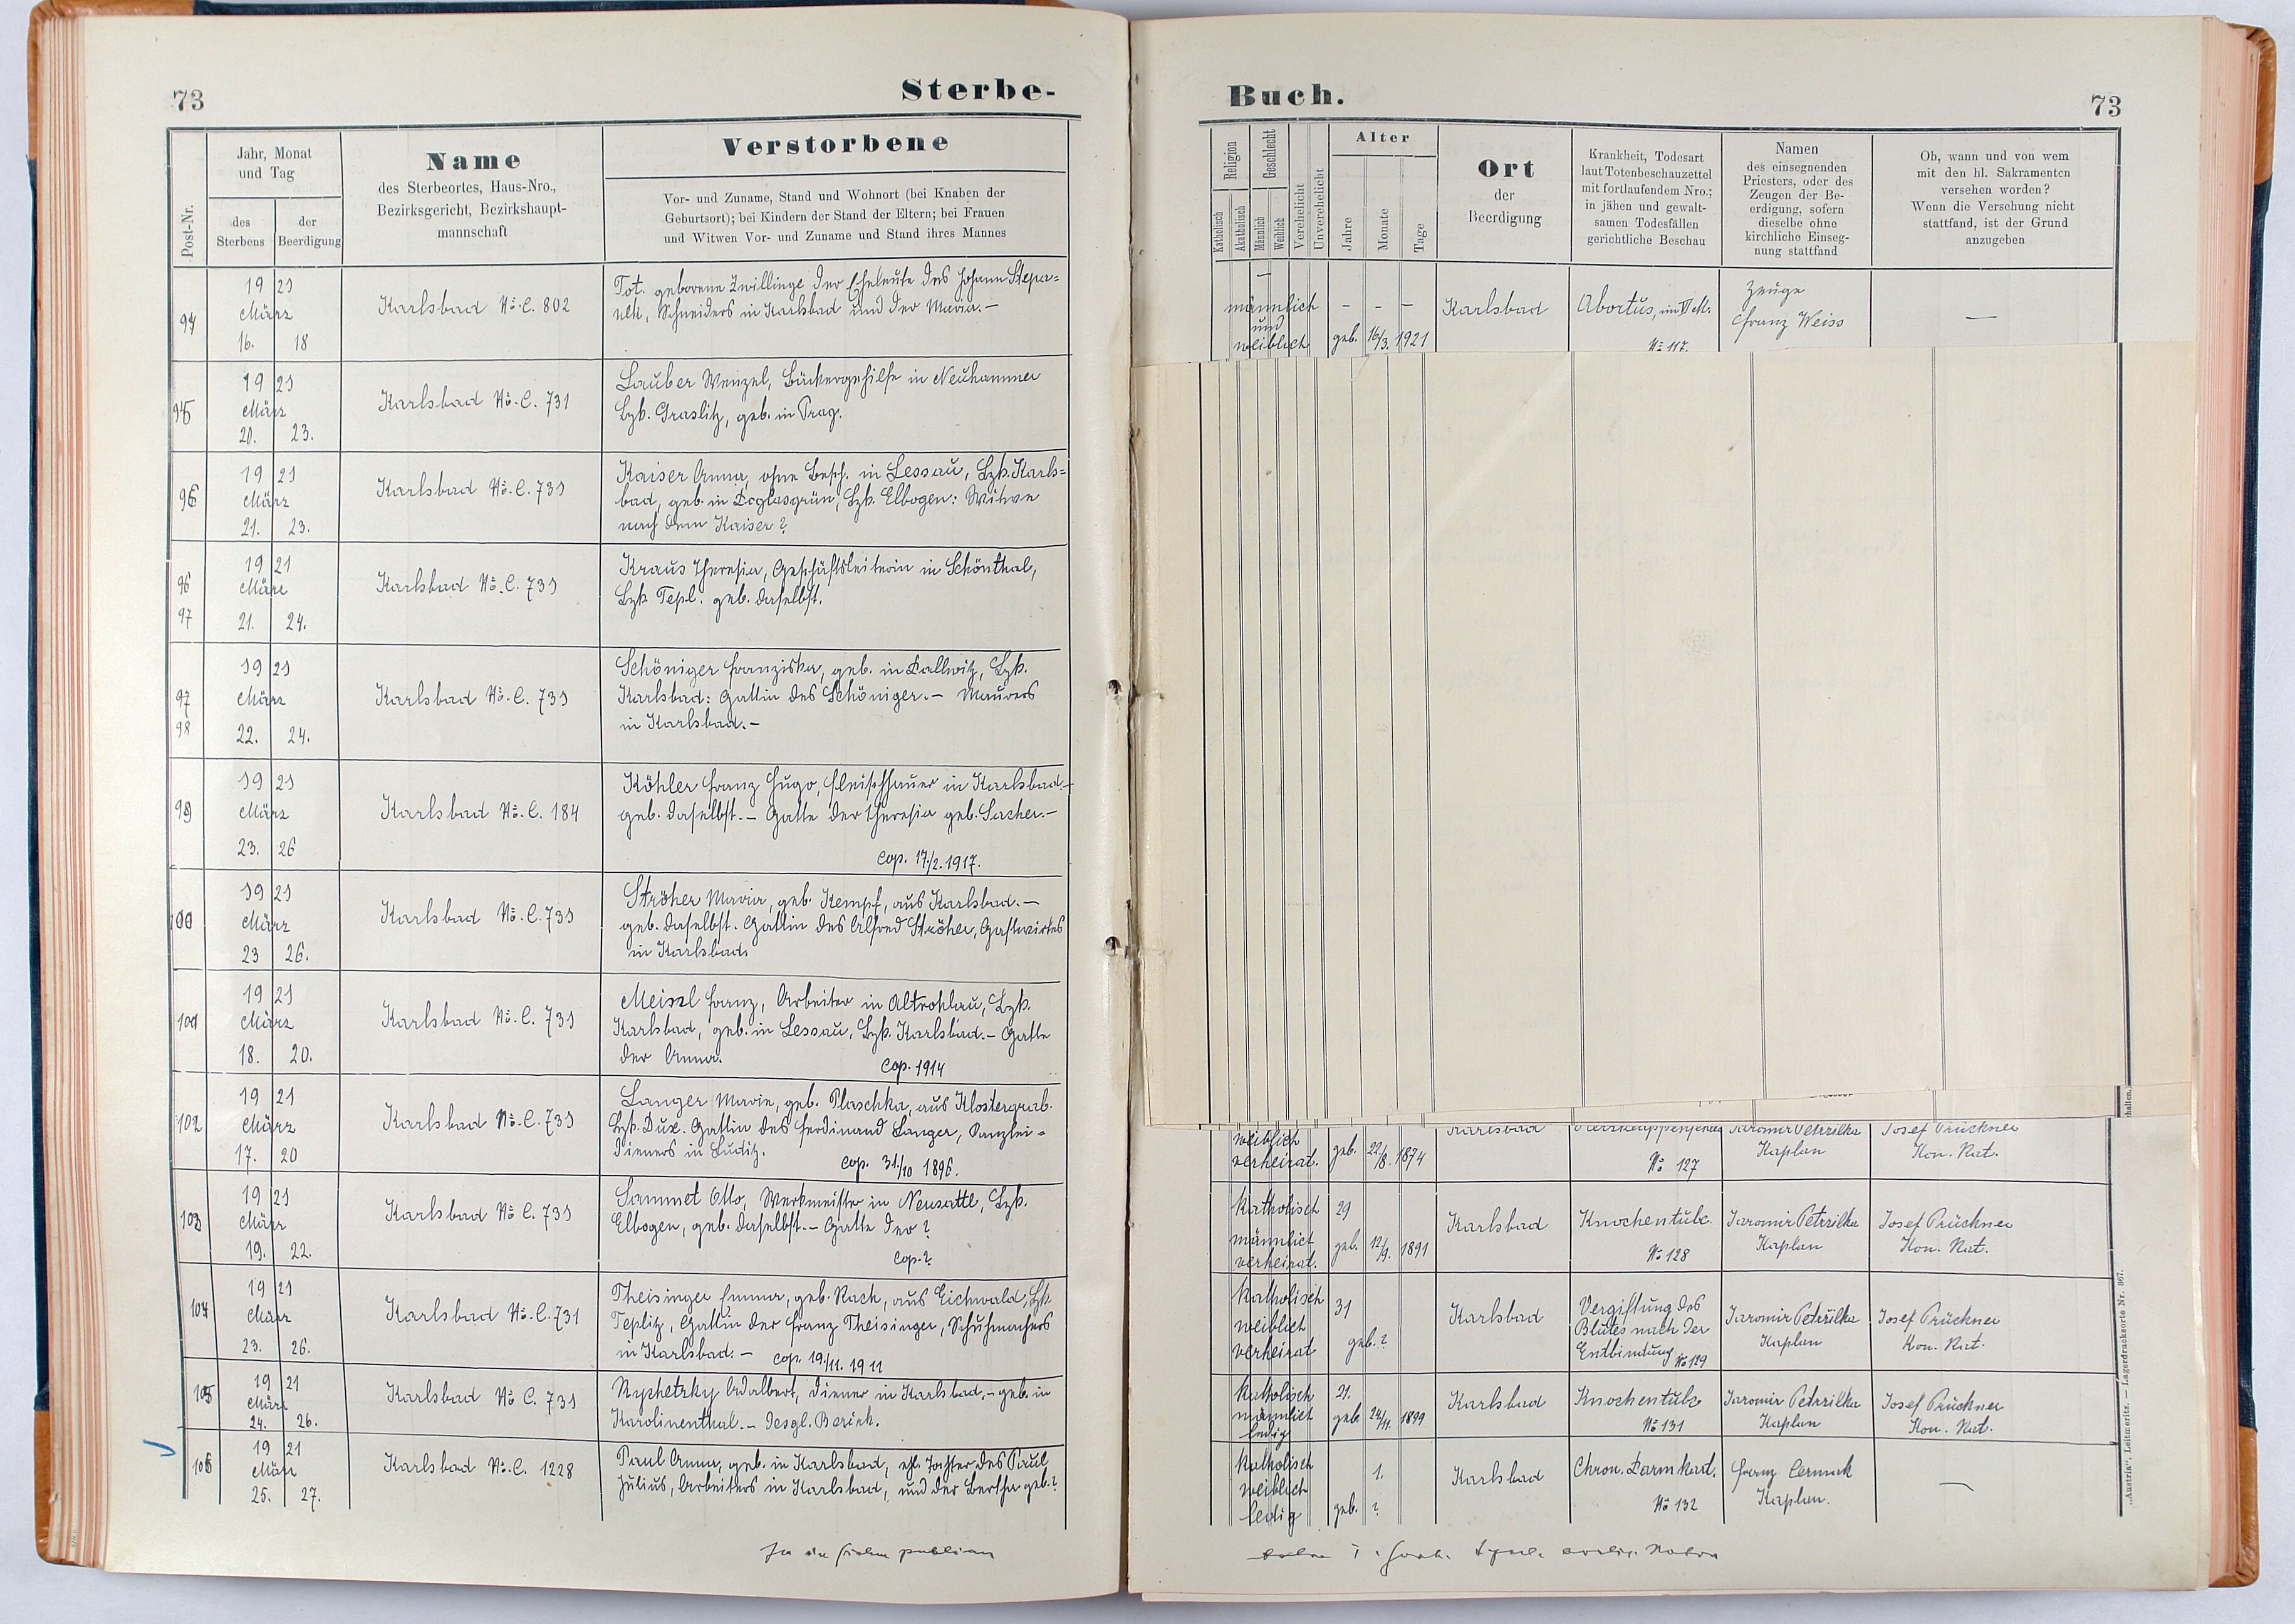 73
Sterbe-
Post-Nr.
Jahr, Monat
und Tag
des
Sterbens
der
Beerdigung
Name
des Sterbeortes, Haus-Nro.,
Bezirksgericht, Bezirkshaupt-
mannschaft
Verstorbene
Vor- und Zuname, Stand und Wohnort (bei Knaben der
Geburtsort); bei Kindern der Stand der Eltern; bei Frauen
und Witwen Vor- und Zuname und Stand ihres Mannes
94
19 21
März
16. 18
Karlsbad No. C. 802
Tot. geborene Zwillinge der Eheleute des Johann Stepa-
nek, Schneiders in Karlsbad und der Maria.—
95
19 21
März
20. 23.
Karlsbad No. C. 731
Lauber Wenzel, Bäckergehilfe in Neuhammer
Bzk. Graslitz, geb. in Prag.
96
19 21
März
21. 23.
Karlsbad No. C. 731
Kaiser Anna, ohne Besch. in Lessau, Bzk. Karls-
bad, geb. in Doglasgrün, Bzk. Elbogen: Witwe
nach dem Kaiser?
96
97
19 21
März
21. 24.
Karlsbad No. C. 731
Kraus Theresia, Geschäftsleiterin in Schönthal,
Bzk Tepl. geb. daselbst.
97
98
19 21
März
22. 24.
Karlsbad No. C. 731
Schöniger Franziska, geb. in Dallwitz, Bzk.
Karlsbad: Gattin des Schöniger.— Maurers
in Karlsbad.—
99
19 21
März
23. 26
Karlsbad No. C. 184
Köhler Franz Hugo, Fleischhauer in Karlsbad.—
geb. daselbst.— Gatte der Theresia geb. Sacher.—
Cop. 17/2. 1917.
100
19 21
März
23 26.
Karlsbad No. C. 731
Ströher Maria, geb. Kempf, aus Karlsbad.—
geb. daselbst. Gattin des Alfred Ströher, Gastwirtes
in Karlsbad.
101
19 21
März
18. 20.
Karlsbad No. C. 731
Meissl Franz, Arbeiter in Altrohlau, Bzk.
Karlsbad, geb. in Lessau, Bzk. Karlsbad.— Gatte
der Anna.
Cop. 1914
102
19 21
März
17. 20
Karlsbad No. C. 731
Langer Marie, geb. Plaschka, aus Klostergrab.
Bzk. Dux. Gattin des Ferdinand Langer, Kanzlei-
dieners in Luditz.
Cop. 31./10 1896.
103
19 21
März
19. 22.
Karlsbad No C. 731
Sammet Otto, Werkmeister in Neusattl, Bzk.
Elbogen, geb. daselbst.— Gatte der?
Cop.?
104
19 21
März
23. 26.
Karlsbad No. C. 731
Theisinger Emma, geb. Rach, aus Eichwald, Bzk.
Teplitz, Gattin der Franz Theisinger, Schuhmachers
in Karlsbad.— Cop. 19./11. 1911
105
19 21
März
24. 26.
Karlsbad No C. 731
Adalbert, Diener in Karlsbad.— geb. in
Karolinenthal.— desgl. Bezirk.
106
19 21
März
25. 27.
Karlsbad No. C. 1228
Paul Anna, geb. in Karlsbad, ehl. Tochter des Paul
Julius, Arbeiters in Karlsbad, und der Bertha geb.?
Buch.
73
Religion
Katholisch
Akatholisch
Geschlecht
Männlich
Weiblich
Verehelicht
Unverehelicht
Alter
Jahre
Monate
Tage
Ort
der
Beerdigung
Krankheit, Todesart
laut Totenbeschauzettel
mit fortlaufendem Nro.;
in jähen und gewalt-
samen Todesfällen
gerichtliche Beschau
Namen
des einsegnenden
Priesters, oder des
Zeugen der Be-
erdigung, sofern
dieselbe ohne
kirchliche Einseg-
nung stattfand
Ob, wann und von wem
mit den hl. Sakramenten
versehen worden?
Wenn die Versehung nicht
stattfand, ist der Grund
anzugeben
—
männlich
und
weiblich
– – –
geb. 16/3. 1921
Karlsbad
Abortus, im VI M.
No 117.
Zeuge
Franz Weiss
—
weiblich
verheirat.
geb. 22/8. 1874
Karlsbad
No 127
Jaromir Petrzilka
Kaplan
Josef Prückner
Kon. Rat.
Katholisch
männlich
verheirat.
29
geb. 12/9. 1891
Karlsbad
Knochentub.
No 128
Jaromir Petrzilka
Kaplan
Josef Prückner
Kon. Rat.
Katholisch
weiblich
verheirat
31
geb.?
Karlsbad
Vergiftung des
Blutes nach der
Entbindung No 129
Jaromir Petrzilka
Kaplan
Josef Prückner
Kon. Rat.
Katholisch
männlich
ledig
21.
geb 24/11. 1899
Karlsbad
Knochentub
No 131
Jaromir Petrzilka
Kaplan
Josef Prückner
Kon. Rat.
Katholisch
weiblich
ledig
1.
geb. ?
Karlsbad
Chron. Darmkat.
No 132
Franz Cermak
Kaplan.
—
„Austria“, Leitmeritz. — Lagerdrucksorte Nr. 867.